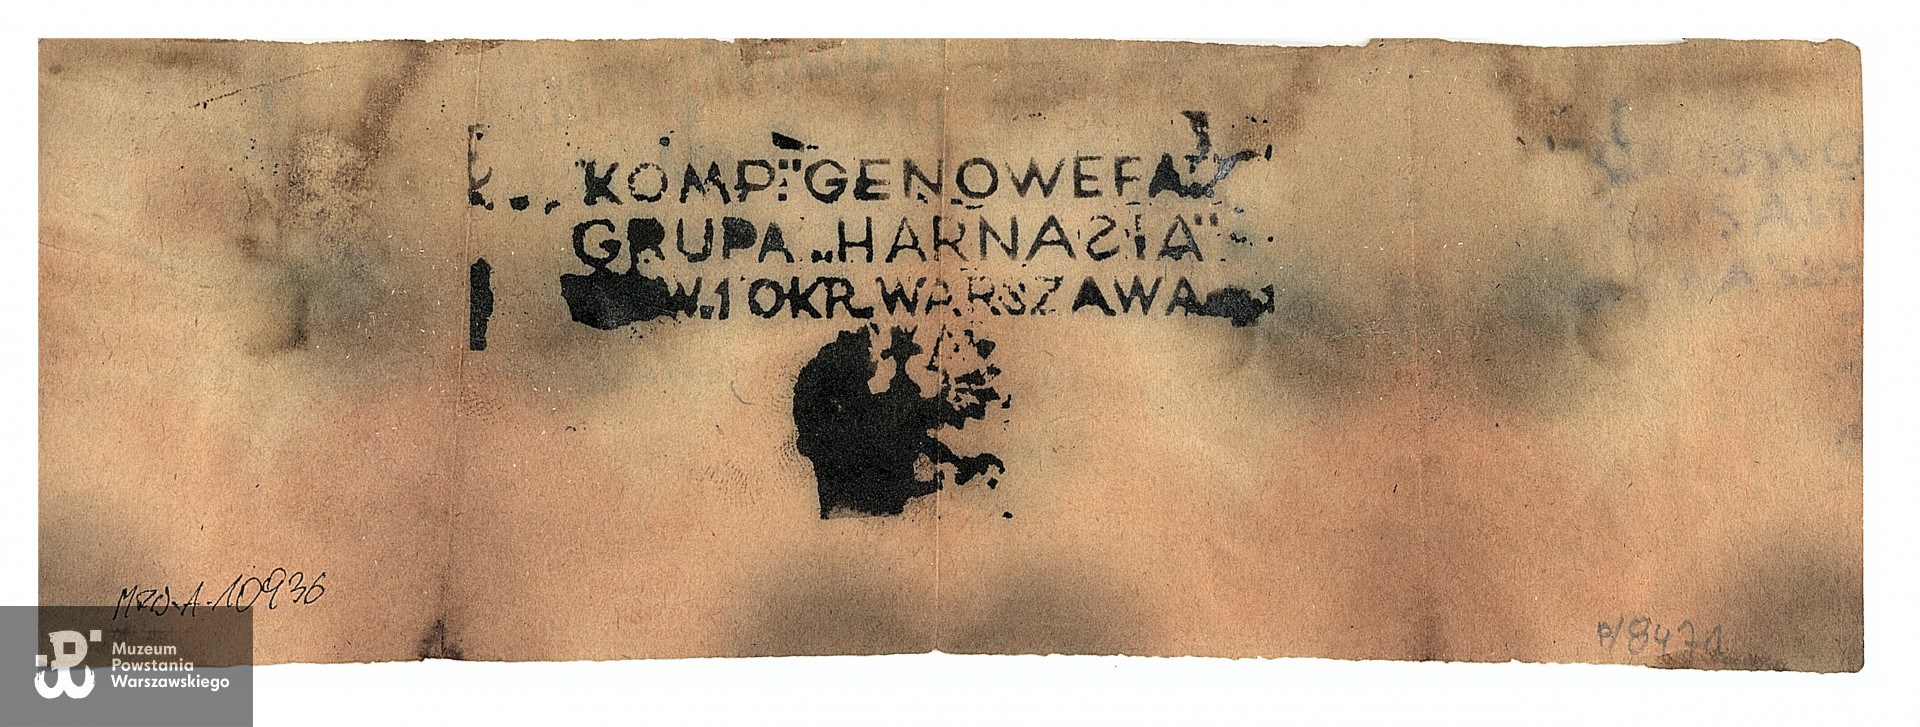 KOMP. "GENOWEFA"
GRUPA „HARNASIA"
W.1 OKR. WARSZAWA
MPW-A-10936
P/8471
Muzeum
Powstania
Warszawskiego